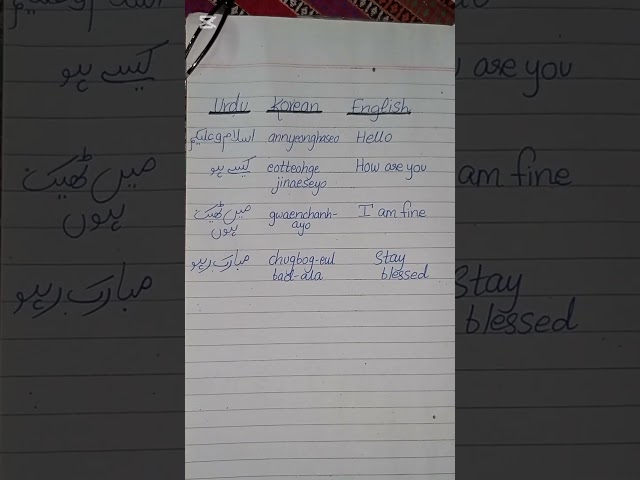 Urdu Korean English
اسلام وعلیکم annyeonghaseo Hello
کیسے ہو eotteohge How are you
jinaeseyo
میں ٹھیک gwaenchanh- I am fine
ہوں ayo
مبارک رہو chugbog-eul Stay
bad-ala blessed